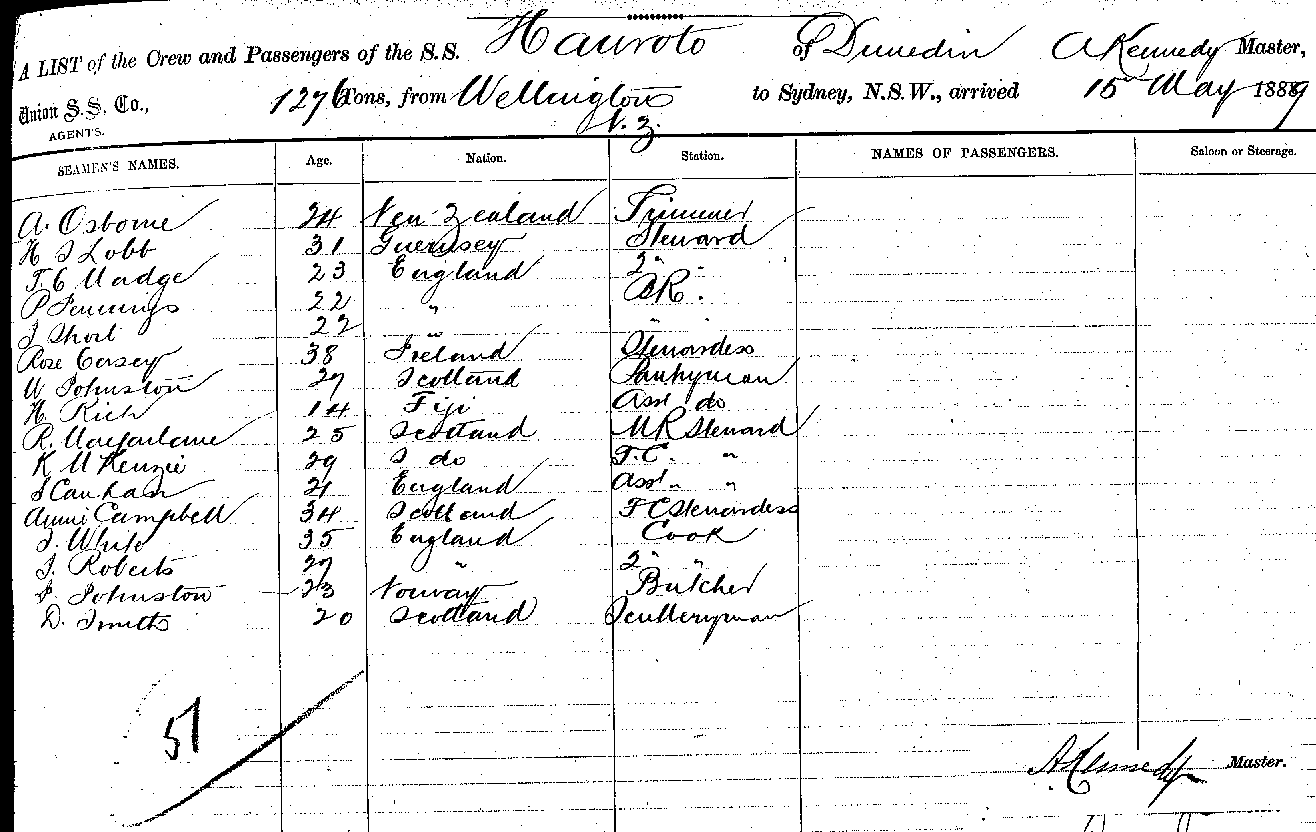 A LIST of the Crew and Passengers of the S.S. Hauroto of Dunedin A Kennedy Master,
Union S.S. Co., 1276 Tons, from Wellington to Sydney, N.S.W., arrived 15 May 1889
N.Z.
AGENTS.
SEAMEN'S NAMES. Age. Nation. Station. NAMES OF PASSENGERS. Saloon or Steerage.
A. Osborne 24 New Zealand Trimmer
H J Lobb 31 Guernsey Steward
T C Madge 23 England 2 " "
P Jennings 22 " BR.
J Short 22 " " "
Rose Casey 38 Ireland Stewardess
W Johnston 27 Scotland Pantryman
H Rich 14 Fiji Asst do
R. Macfarlane 25 Scotland MR Steward
K McKenzie 29 do F.C. "
21 England Asst " "
Annie Campbell 34 Scotland F C Stewardess
J. White 35 England Cook
J. Roberts 27 " 2 " "
Johnston 23 Norway Butcher
D. Smith 20 Scotland Sculleryman
51
A Kennedy Master.